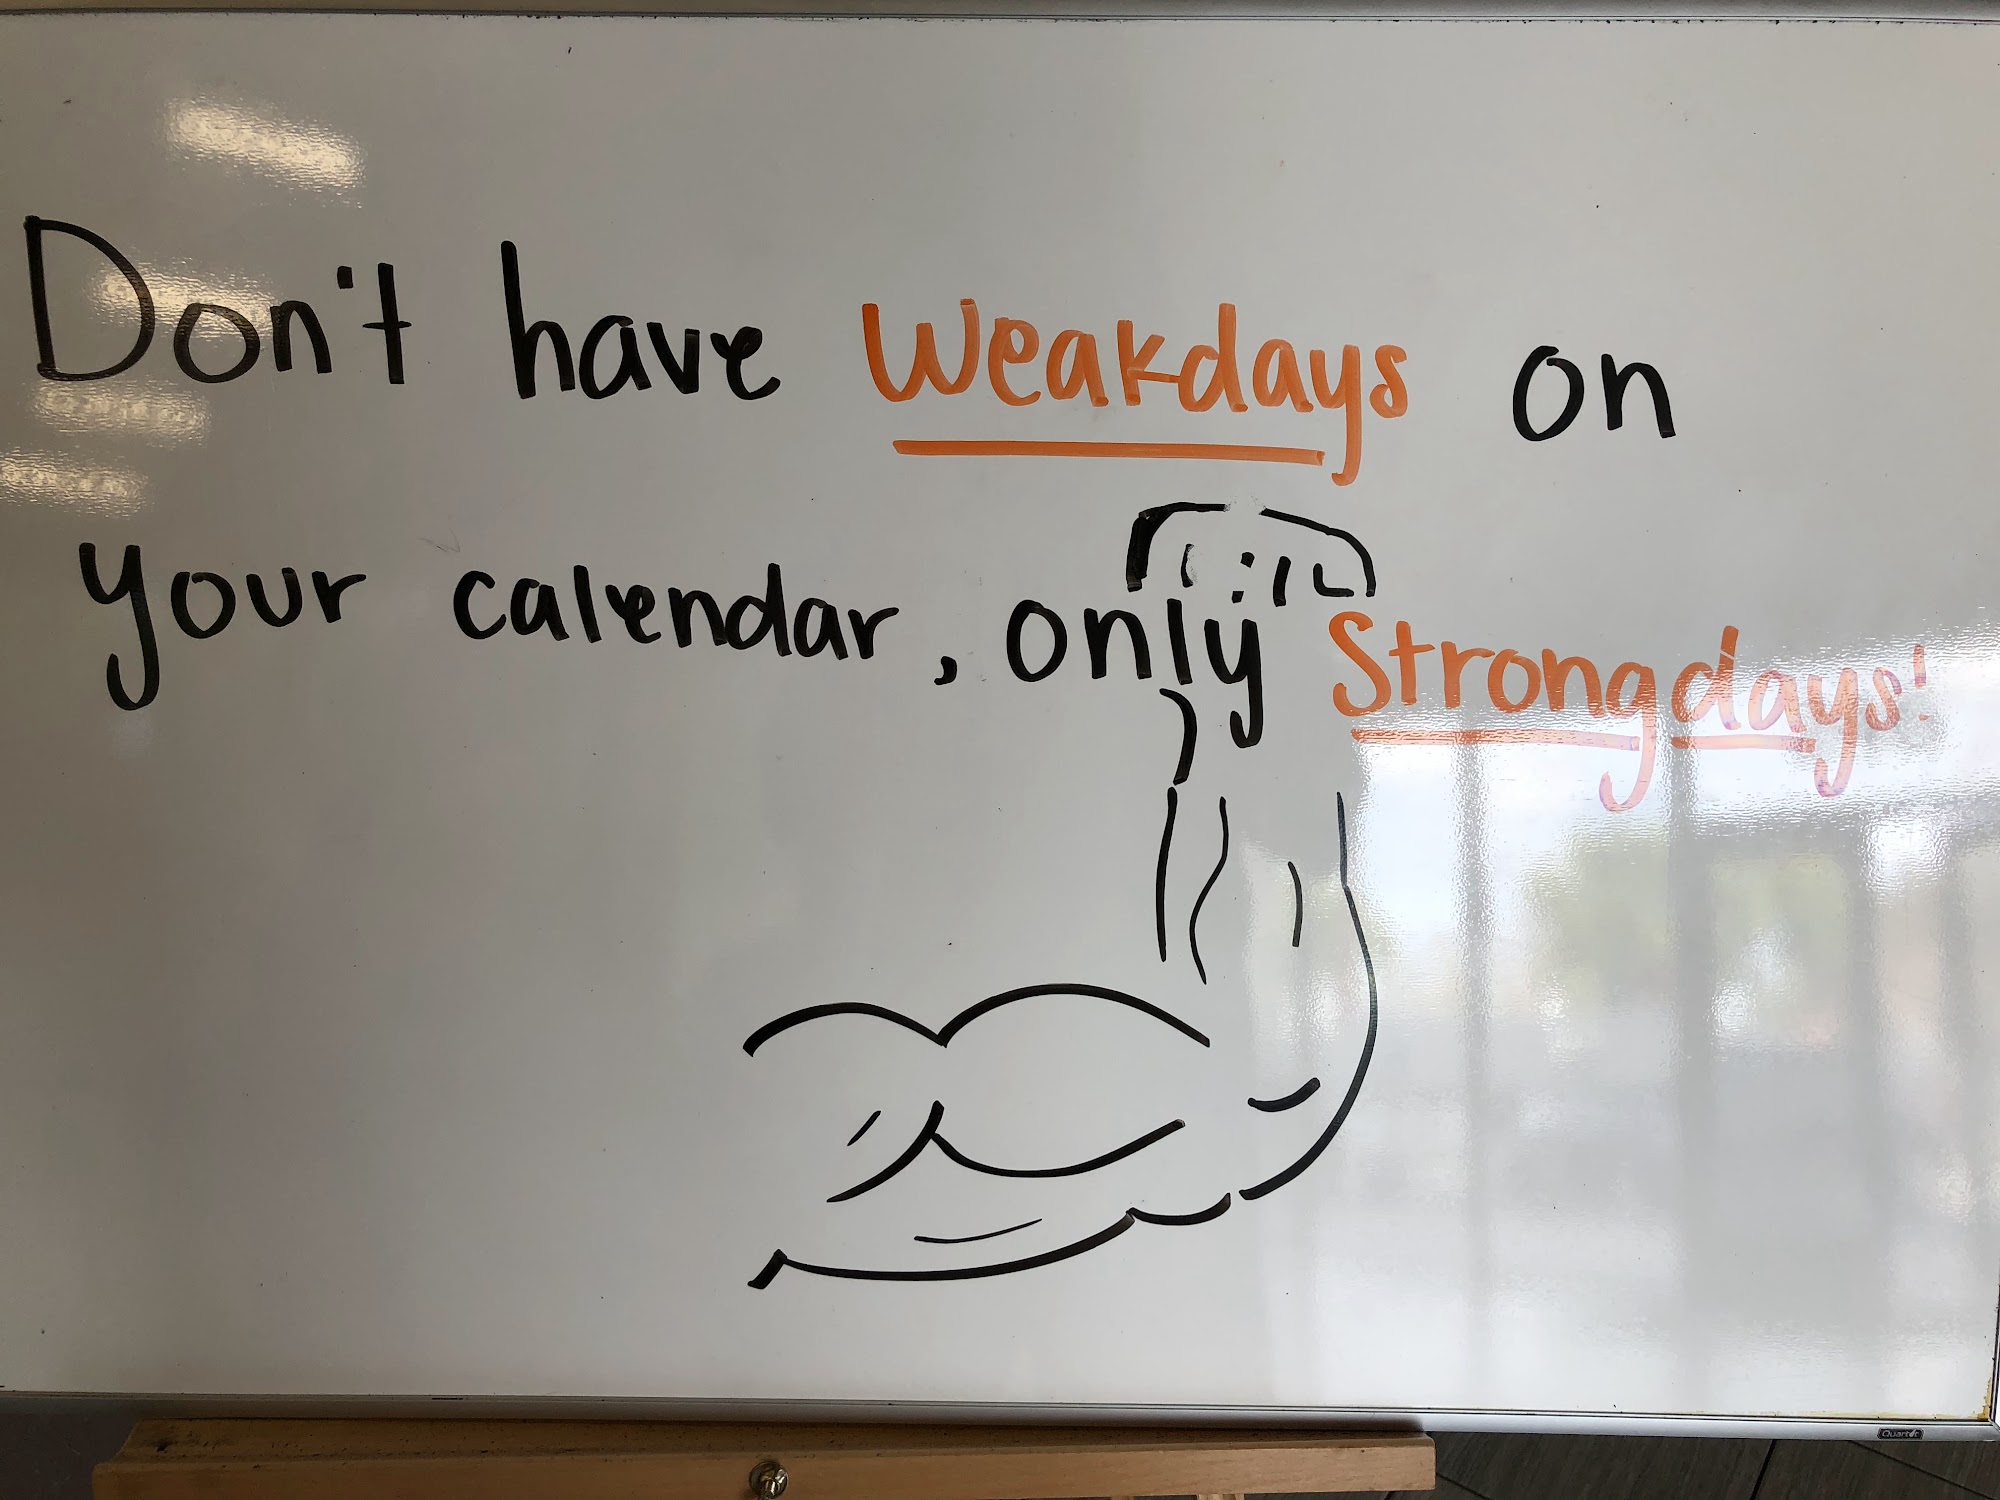 Don't have Weakdays on
your calendar, only Strongdays!
Quartet